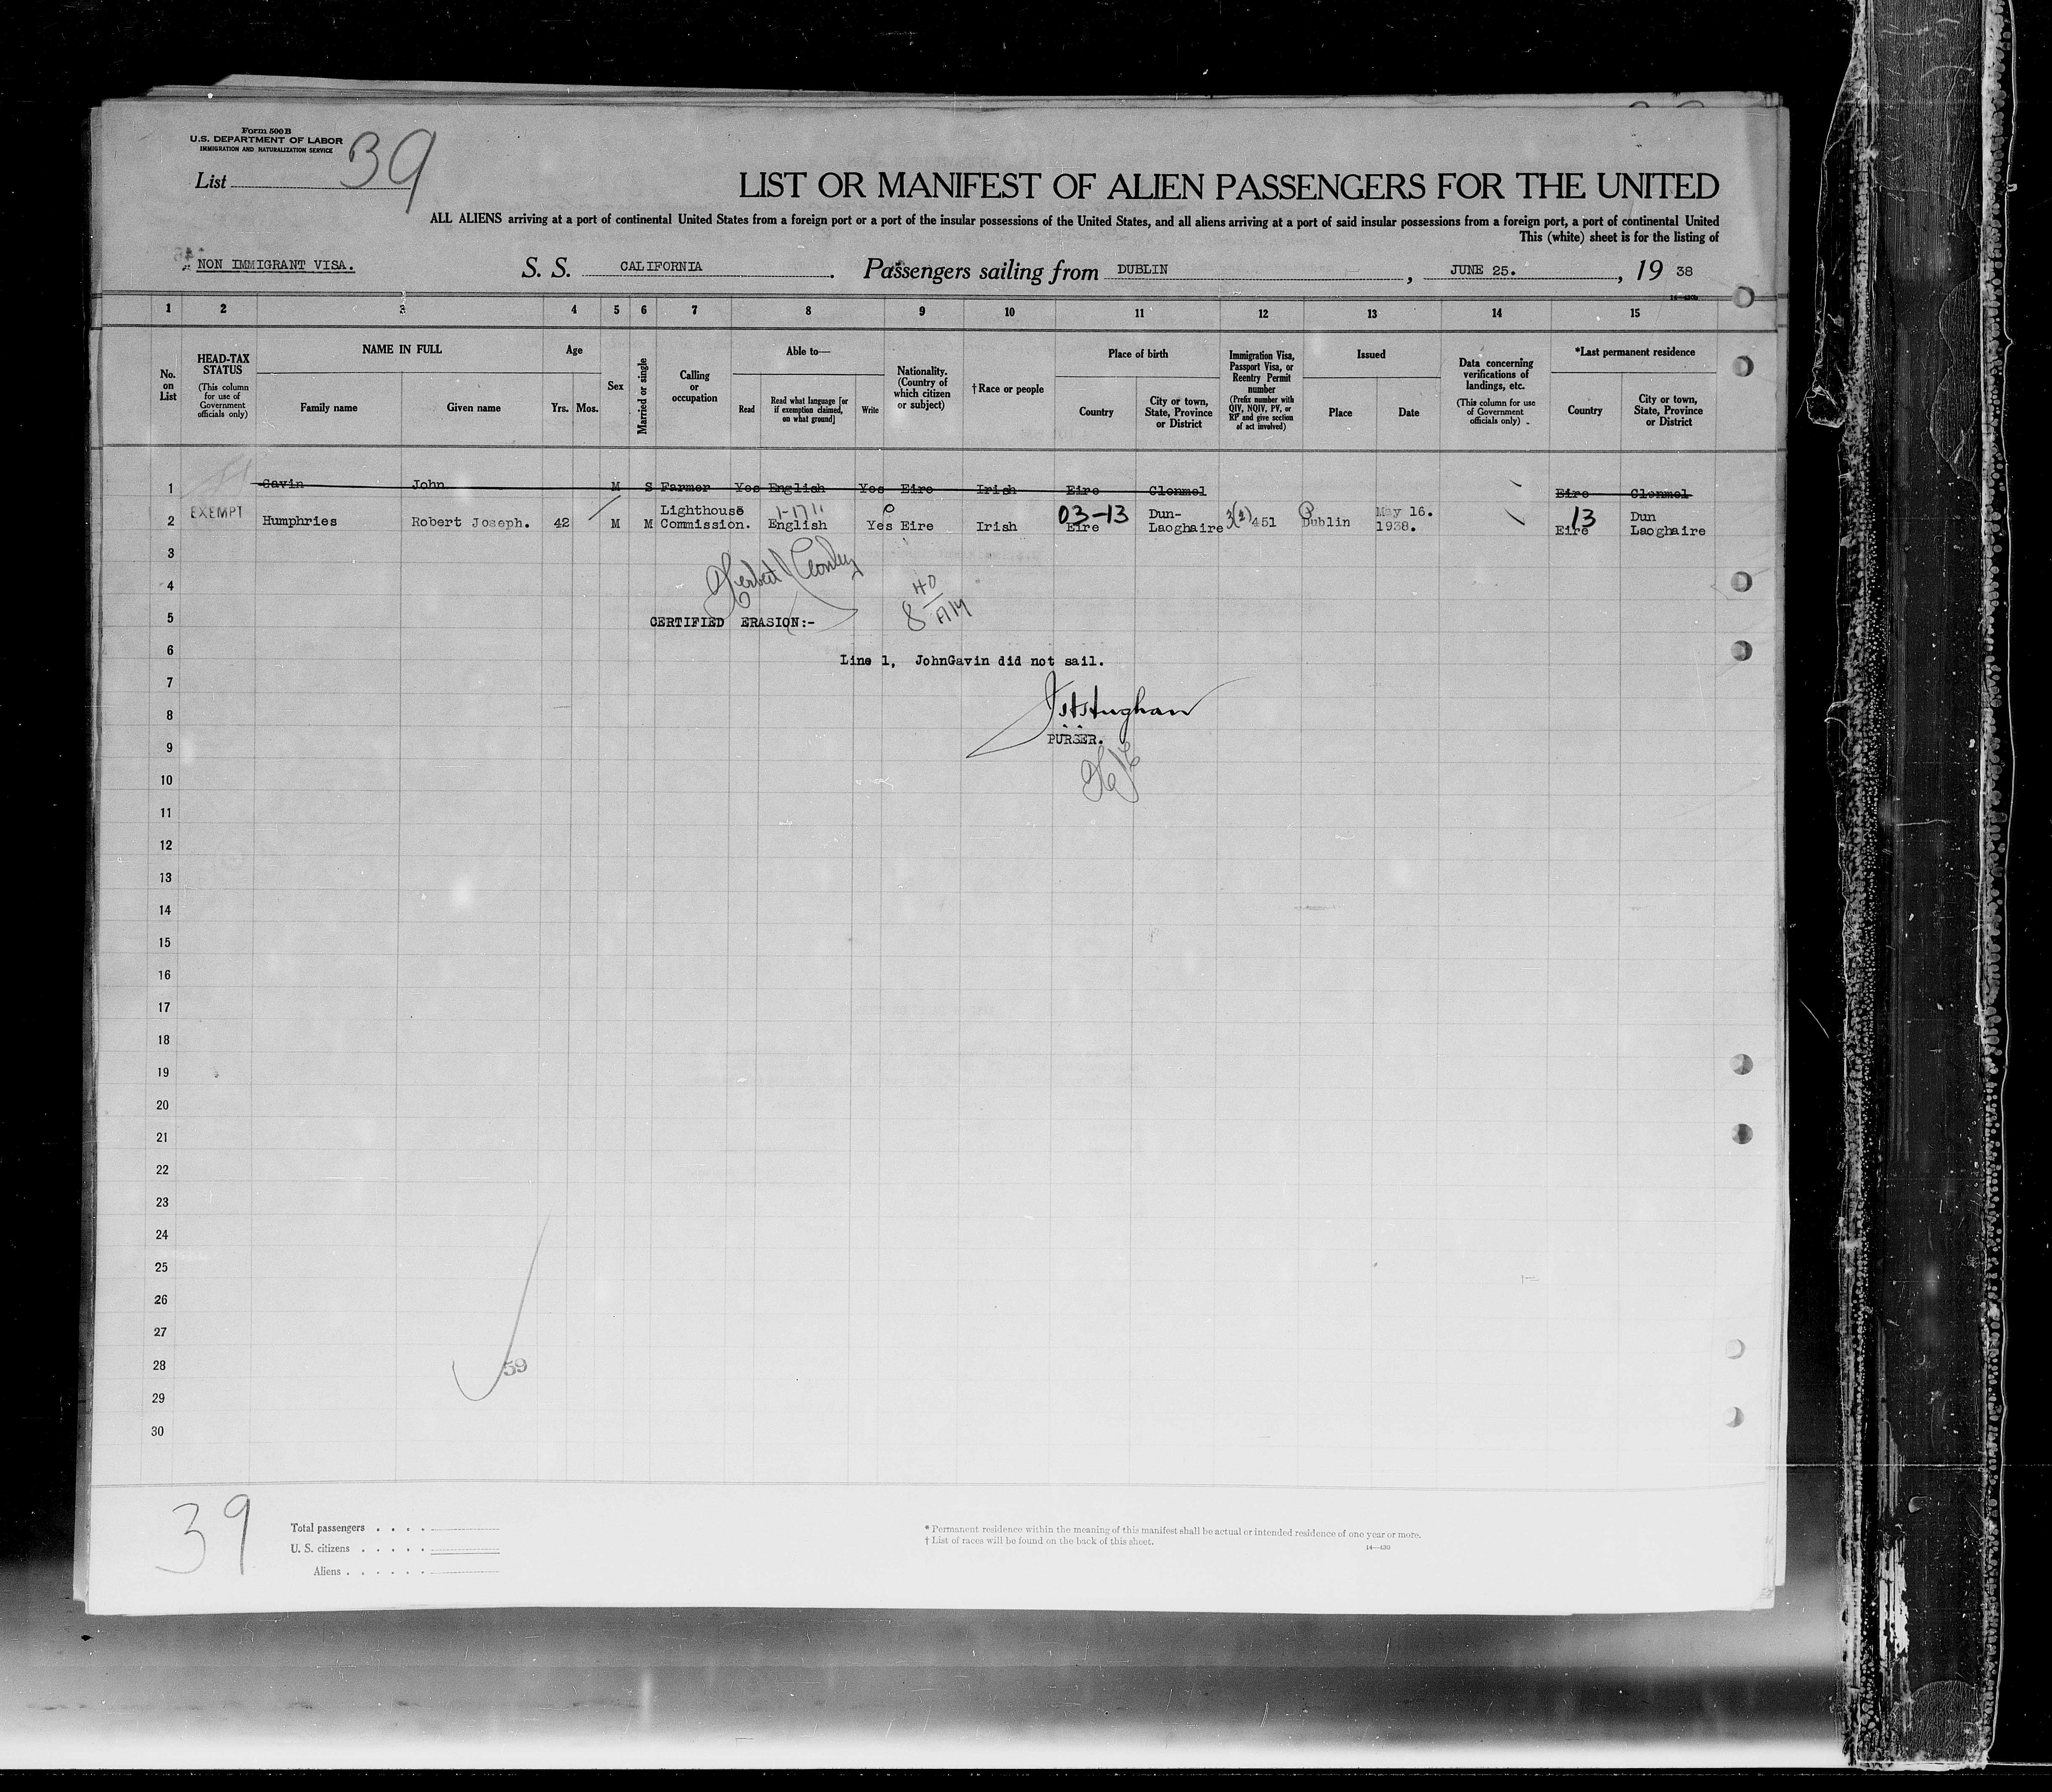 Form 500 B
U.S. DEPARTMENT OF LABOR
IMMIGRATION AND NATURALIZATION SERVICE
39
List
LIST OR MANIFEST OF ALIEN PASSENGERS FOR THE UNITED
ALL ALIENS arriving at a port of continental United States from a foreign port or a port of the insular possessions of the United States, and all aliens arriving at a port of said insular possessions from a foreign port, a port of continental United
This (white) sheet is for the listing of
NON IMMIGRANT VISA. S. S. CALIFORNIA . Passengers sailing from DUBLIN , JUNE 25. , 19 38
1 2 3 4 5 6 7 8 9 10 11 12 13 14 15
No. on List
HEAD-TAX STATUS (This column for use of Government officials only)
NAME IN FULL
Family name Given name
Age
Yrs. Mos.
Sex
Married or single
Calling or occupation
Able to—
Read Read what language [or if exemption claimed, on what ground] Write
Nationality. (Country of which citizen or subject)
†Race or people
Place of birth
Country City or town, State, Province or District
Immigration Visa, Passport Visa, or Reentry Permit number (Prefix number with QIV, NQIV, PV, or RP and give section of act involved)
Issued
Place Date
Data concerning verifications of landings, etc. (This column for use of Government officials only)
*Last permanent residence
Country City or town, State, Province or District
1 Gavin John M S Farmer Yes English Yes Eire Irish Eire Clonmel Eire Clonmel
EXEMPT
2 Humphries Robert Joseph. 42 M M Lighthouse Commission. English Yes Eire Irish 03-13 Eire Dun-Laoghaire 451 Dublin May 16. 1938. 13 Eire Dun Laoghaire
3
4
5 CERTIFIED ERASION:-
6 Line 1, JohnGavin did not sail.
7
8
9 PURSER.
10
11
12
13
14
15
16
17
18
19
20
21
22
23
24
25
26
27
28 59
29
30
39
Total passengers . . . .
U. S. citizens . . . . .
Aliens . . . . . .
* Permanent residence within the meaning of this manifest shall be actual or intended residence of one year or more.
† List of races will be found on the back of this sheet.
14—430